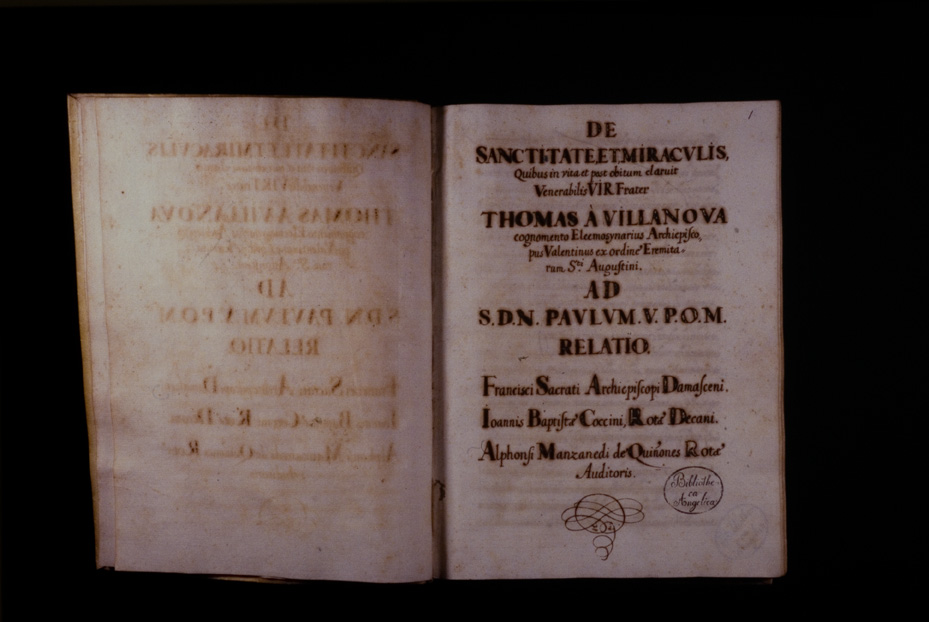 1
DE
SANCTITATE ET MIRACVLIS,
Quibus in vita et post obitum claruit
Venerabilis VIR Frater
THOMAS À VILLANOVA
cognomento Eleemosynarius Archiepiſco,
pus Valentinus ex ordine Eremita-
rum S.ti Auguſtini.
AD
S.D.N. PAVLVM.V. P.O.M.
RELATIO.
Franciſci Sacrati Archiepiſcopi Damaſceni.
Ioannis Baptiſtæ Coccini, Rotæ Decani.
Alphonſi Manzanedi de Quiñones Rotæ
Auditoris.
Bibliothe
ca
Angelica